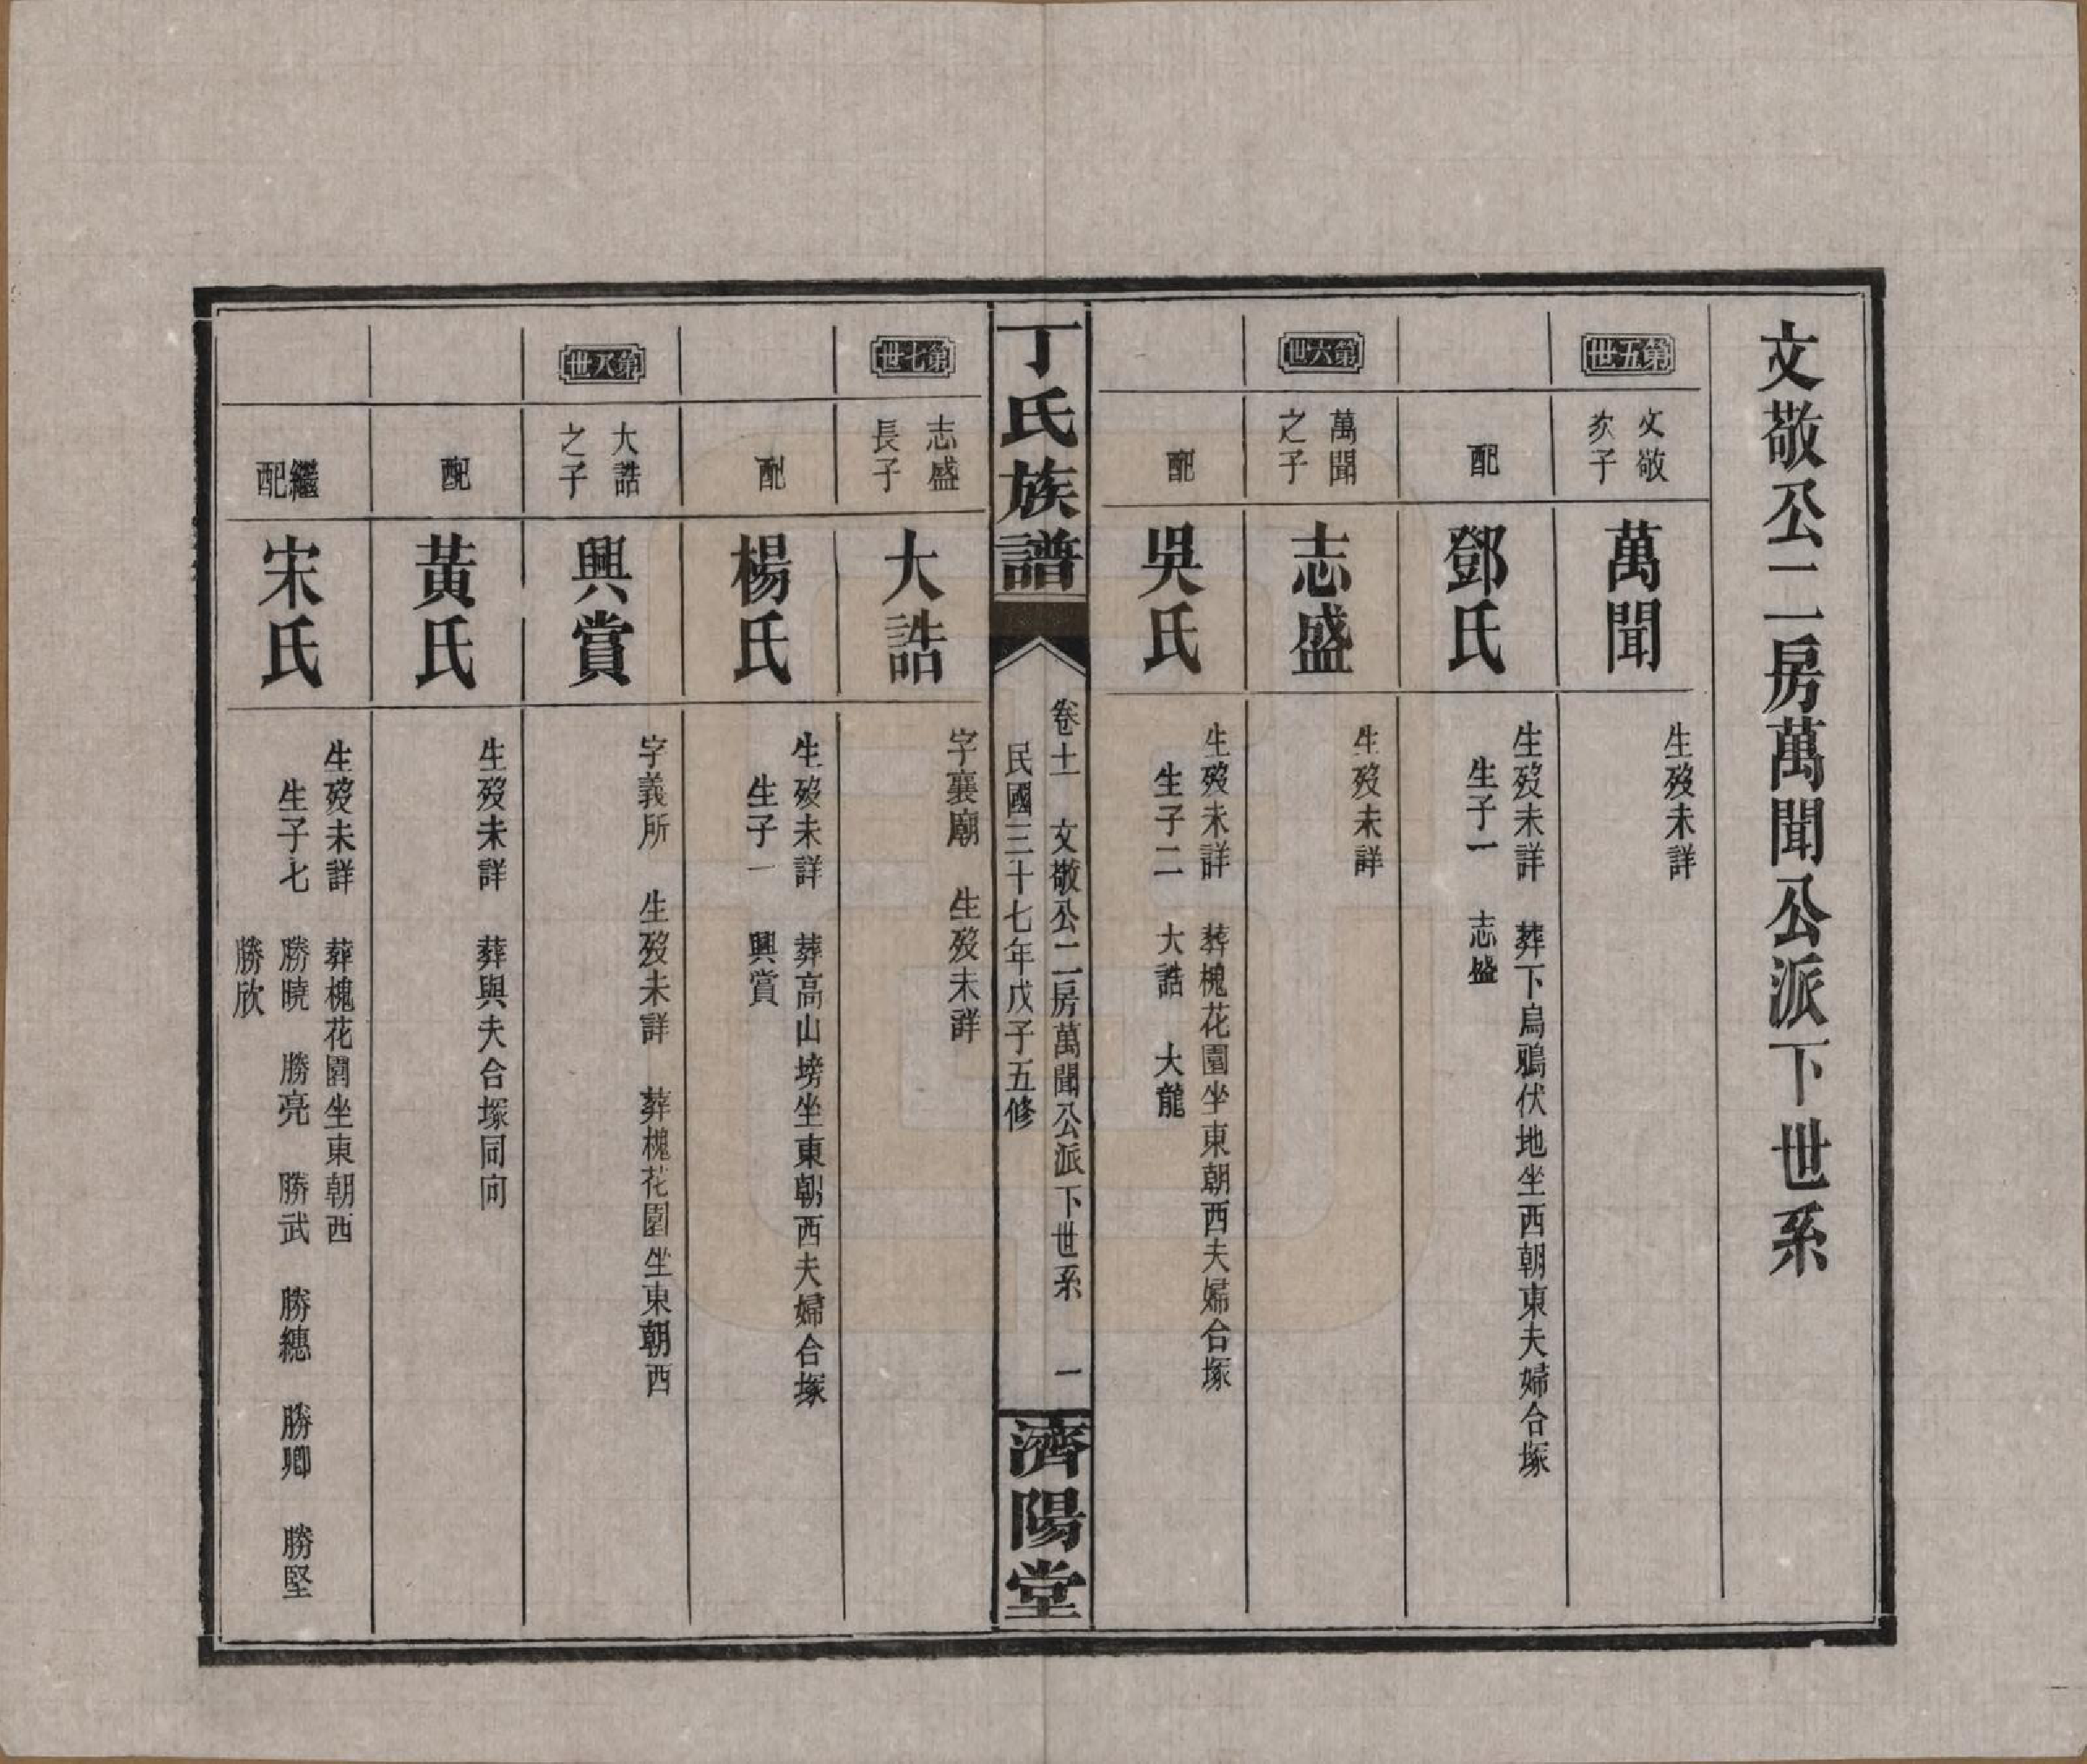 文敬公二房萬聞公派下世系
第五世
文敬
次子
萬聞
生歿未詳
配
鄧氏
生歿未詳　葬下烏鴉伏地坐西朝東夫婦合塚
生子一　志盛
第六世
萬聞
之子
志盛
生歿未詳
配
吳氏
生歿未詳　葬槐花園坐東朝西夫婦合塚
生子二　大誥　大龍
丁氏族譜
卷十一　文敬公二房萬聞公派下世系　一
民國三十七年戊子五修
濟陽堂
第七世
志盛
長子
大誥
字襄廟　生歿未詳
配
楊氏
生歿未詳　葬高山塝坐東朝西夫婦合塚
生子一　興賞
第八世
大誥
之子
興賞
字義所　生歿未詳　葬槐花園坐東朝西
配
黃氏
生歿未詳　葬與夫合塚同向
繼配
宋氏
生歿未詳　葬槐花園坐東朝西
生子七　勝曉　勝亮　勝武　勝繐　勝卿　勝堅
勝欣